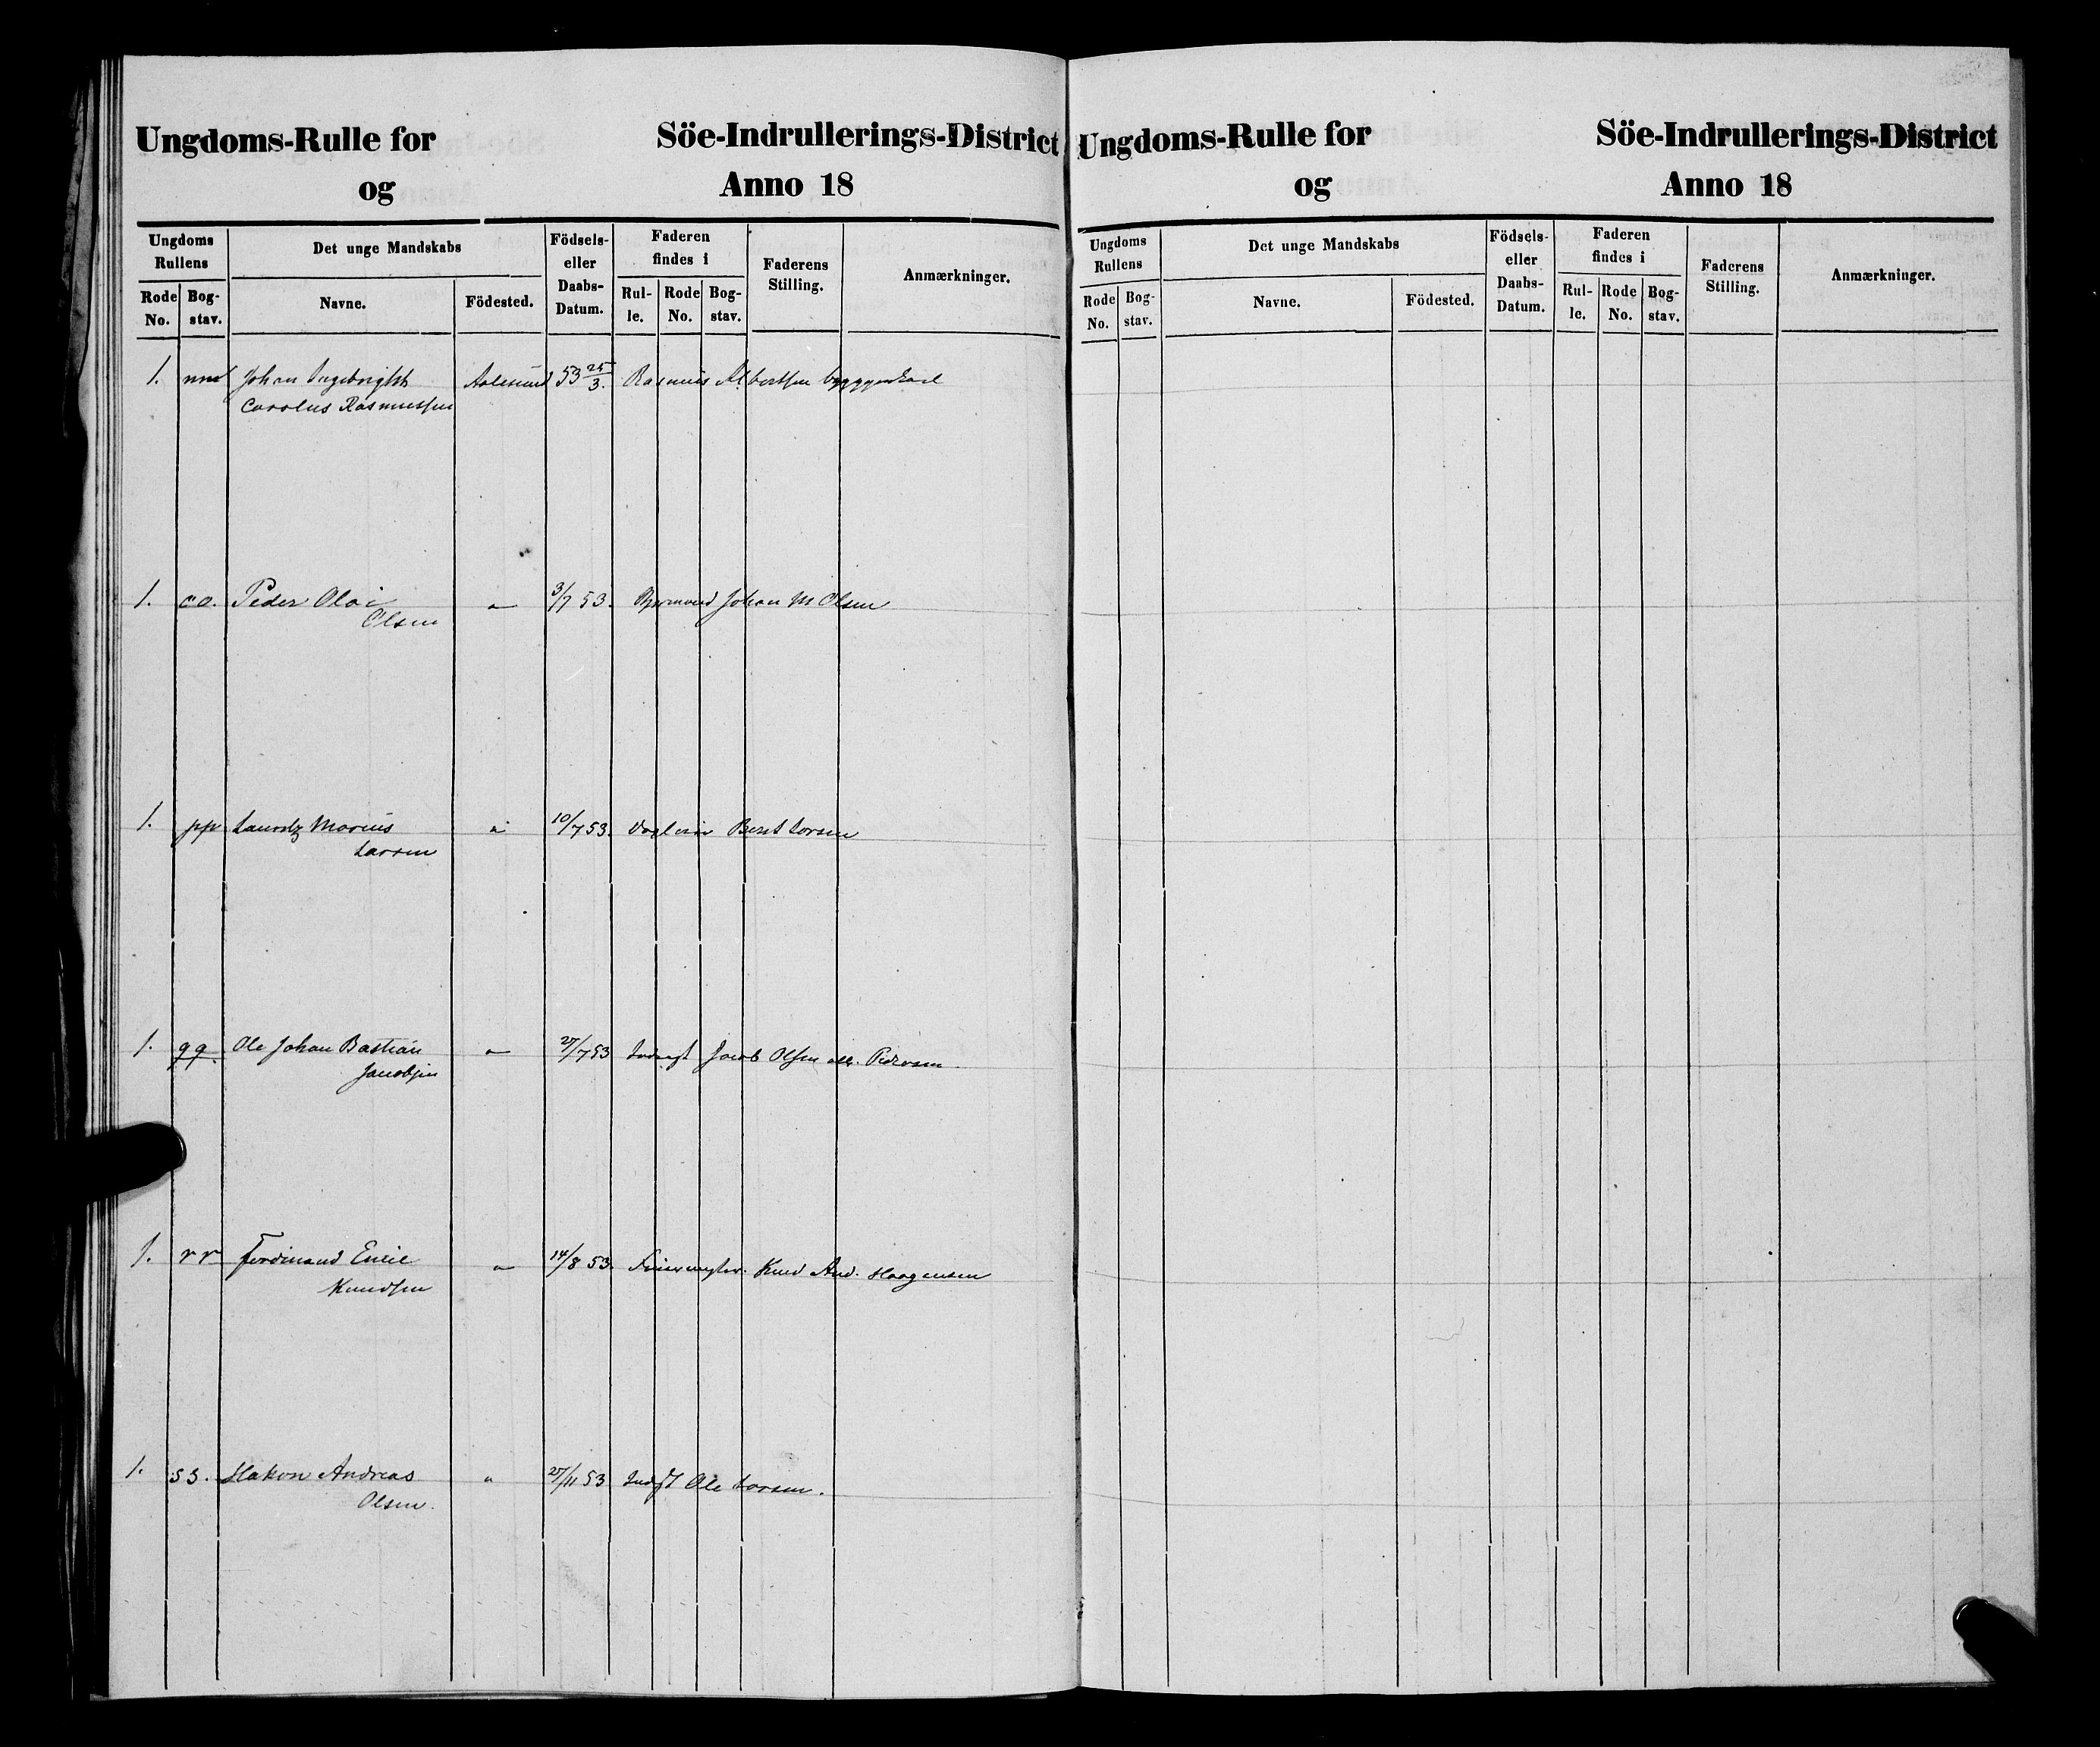 Ungdoms-Rulle for Söe-Indrullerings-District
og Anno 18
Ungdoms Rullens Det unge Mandskabs Födsels- eller Daabs- Datum. Faderen findes i Faderens Stilling. Anmærkninger.
Rode No. Bog- stav. Navne. Födested. Rul- le. Rode No. Bog- stav.
1. nn Johan Ingebrigt Aalesund 53 25/3. Rasmus Albertsen byggeskarl
Carolus Rasmussen
1. oo. Peder Olai " 3/7 53. Johan M Olsen
Olsen
1. pp Lauritz Marius " 10/7 53. Bernt Larsen
Larsen
1. qq. Ole Johan Bastian " 27/7 53 Jacob Olsen all. Pedersen
Jacobsen
1. rr Ferdinand Emil " 14/8 53. Knud And. Haagensen
Knudsen
1. ss. Hakon Andreas " 27/11 53 Ole Larsen.
Olsen.
Ungdoms-Rulle for Söe-Indrullerings-District
og Anno 18
Ungdoms Rullens Det unge Mandskabs Födsels- eller Daabs- Datum. Faderen findes i Faderens Stilling. Anmærkninger.
Rode No. Bog- stav. Navne. Födested. Rul- le. Rode No. Bog- stav.